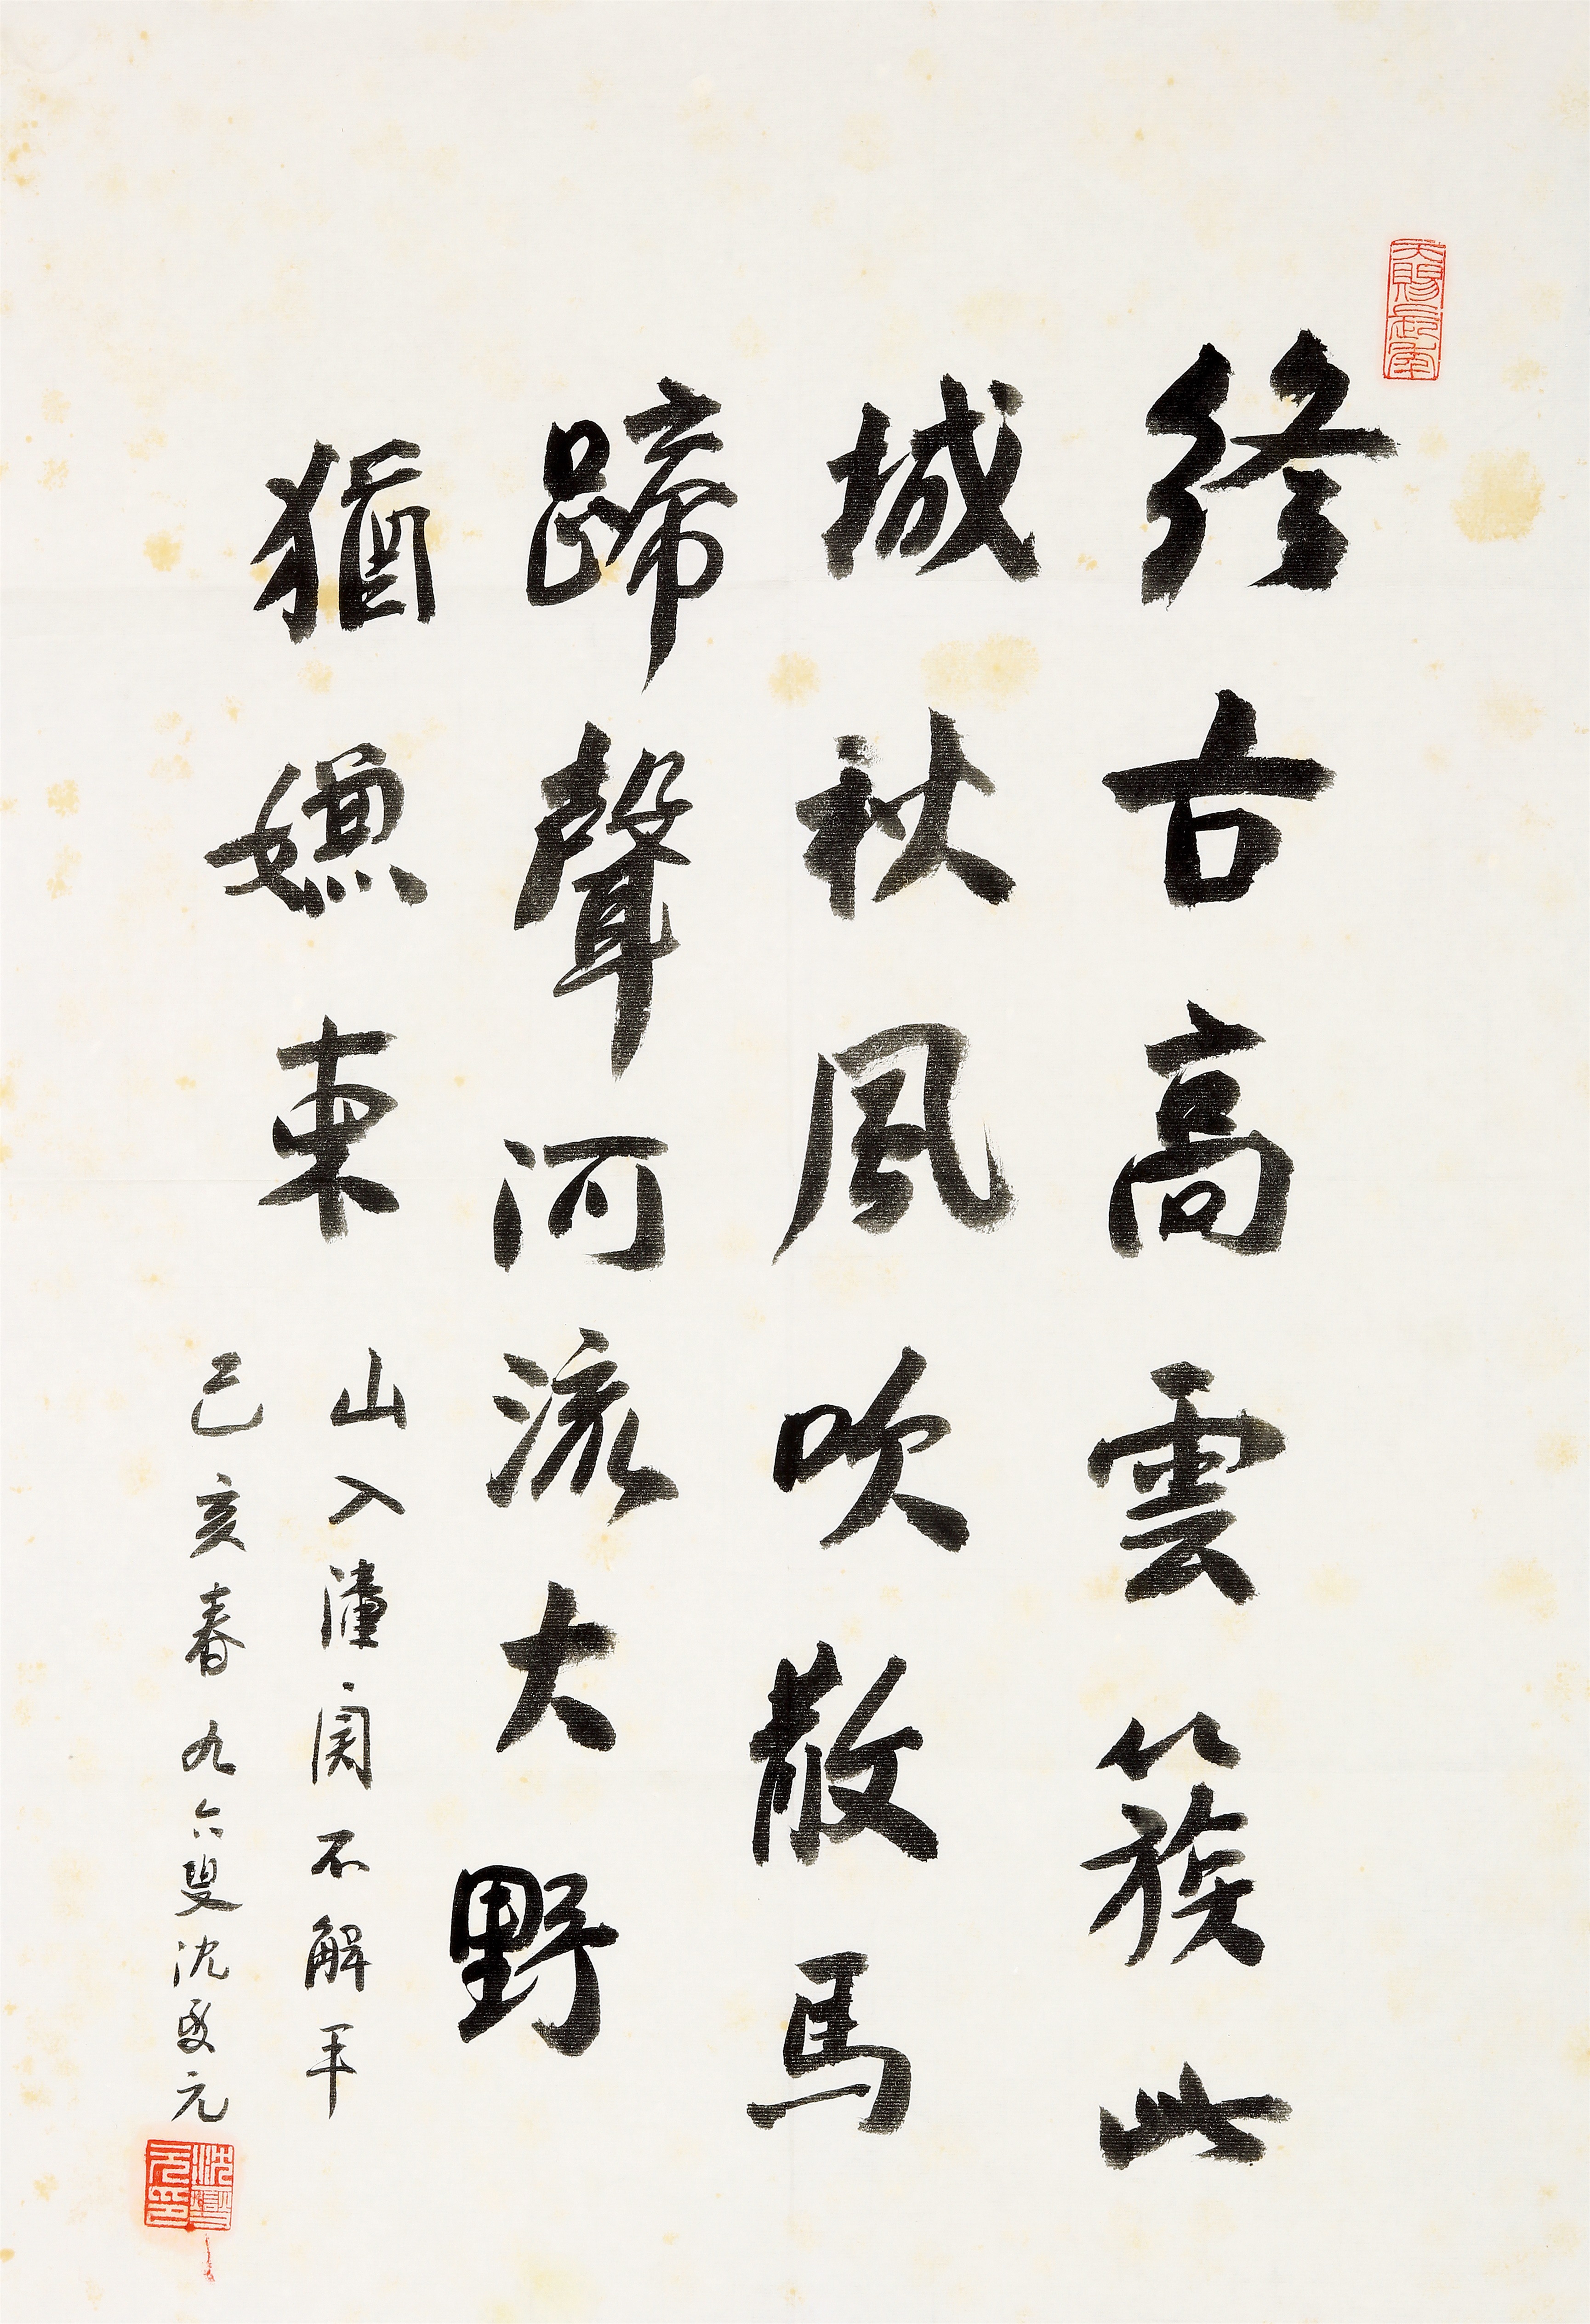 天賜長年
終古高雲簇此
城秋風吹散馬
蹄聲河流大野
猶嫌束
山入潼關不解平
己亥春九六叟沈燮元
沈燮元印